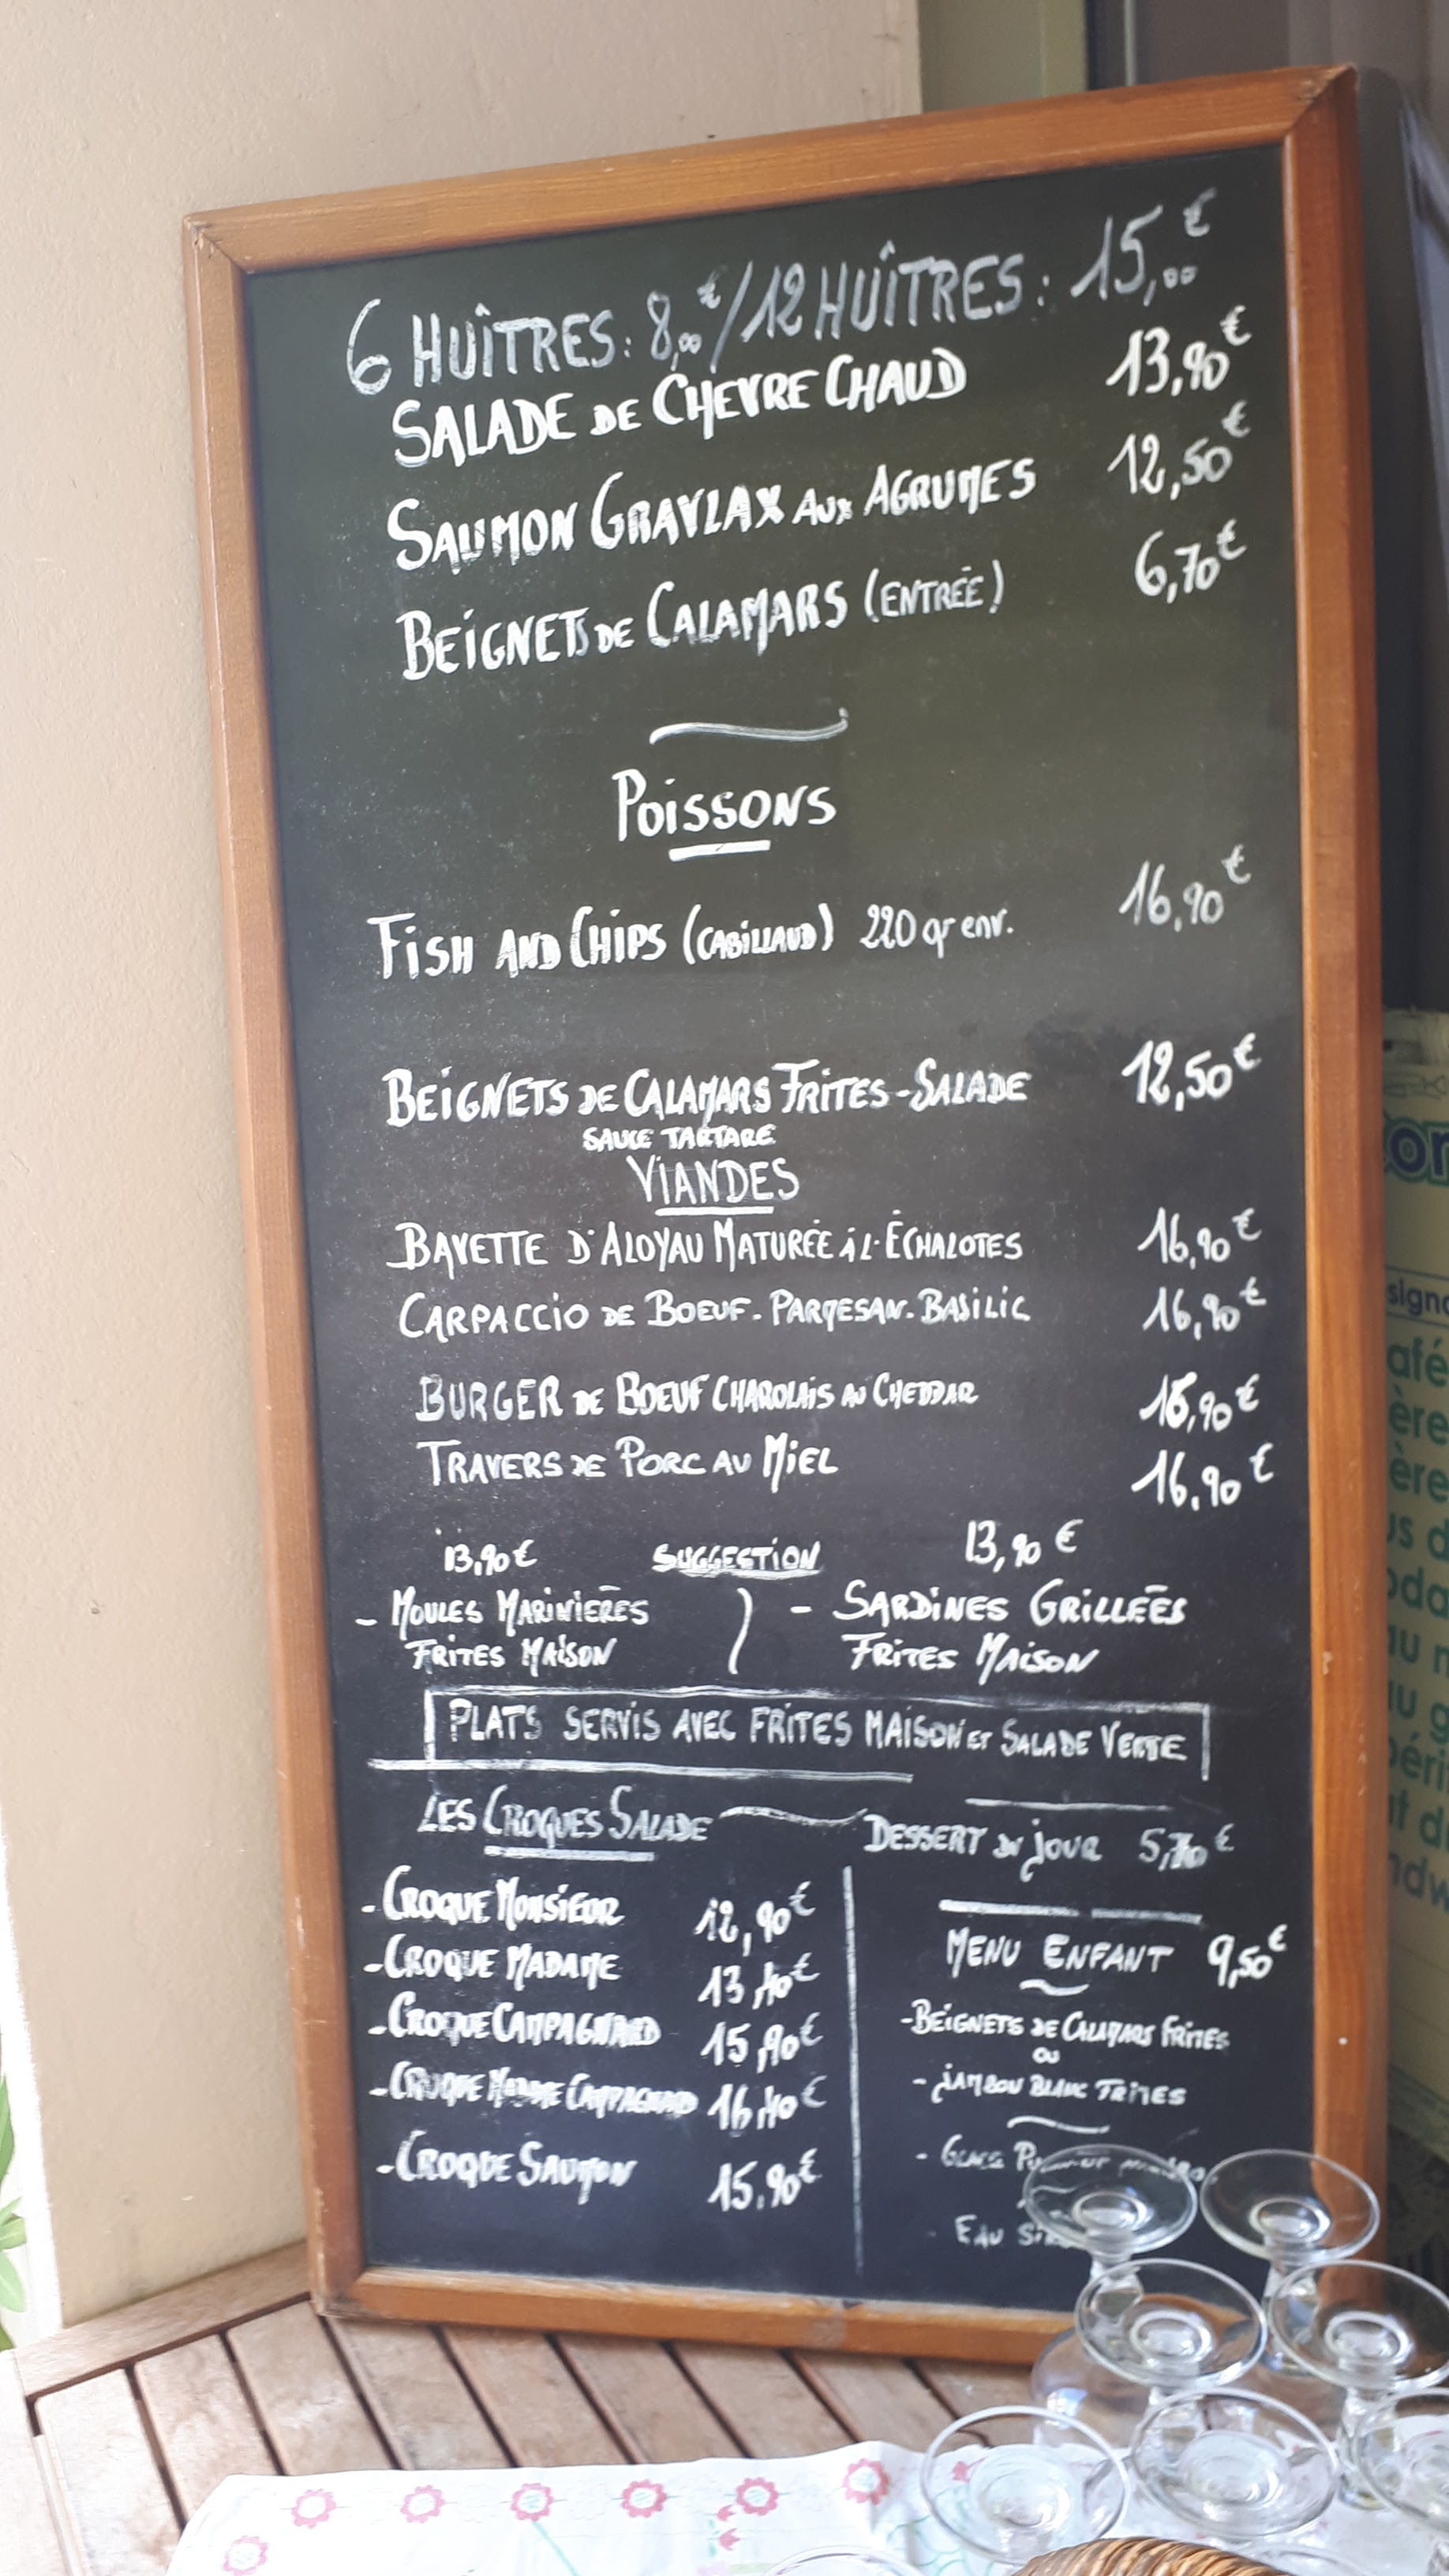 6 HUÎTRES: 8,00€/12 HUÎTRES: 15,00€
SALADE DE CHEVRE CHAUD 13,90€
SAUMON GRAVLAX AUX AGRUMES 12,50€
BEIGNETS DE CALAMARS (ENTRÉE) 6,70€
POISSONS
FISH AND CHIPS (CABILLAUD) 220 gr env. 16,90€
BEIGNETS DE CALAMARS FRITES-SALADE 12,50€
SAUCE TARTARE
VIANDES
BAVETTE D'ALOYAU MATURÉE À L'ÉCHALOTES 16,90€
CARPACCIO DE BOEUF-PARMESAN-BASILIC 16,90€
BURGER DE BOEUF CHAROLAIS AU CHEDDAR 16,90€
TRAVERS DE PORC AU MIEL 16,90€
13,90€ SUGGESTION 13,90€
- MOULES MARINIÈRES
FRITES MAISON
- SARDINES GRILLÉES
FRITES MAISON
PLATS SERVIS AVEC FRITES MAISON ET SALADE VERTE
LES CROQUES SALADE
- CROQUE MONSIEUR 12,90€
- CROQUE MADAME 13,40€
- CROQUE CAMPAGNARD 15,90€
- CROQUE CAMPAGNARD 16,40€
- CROQUE SAUMON 15,90€
DESSERT DU JOUR €
MENU ENFANT 9,50€
- BEIGNETS DE CALAMARS FRITES
OU
- JAMBON BLANC FRITES
- GLACE
EAU